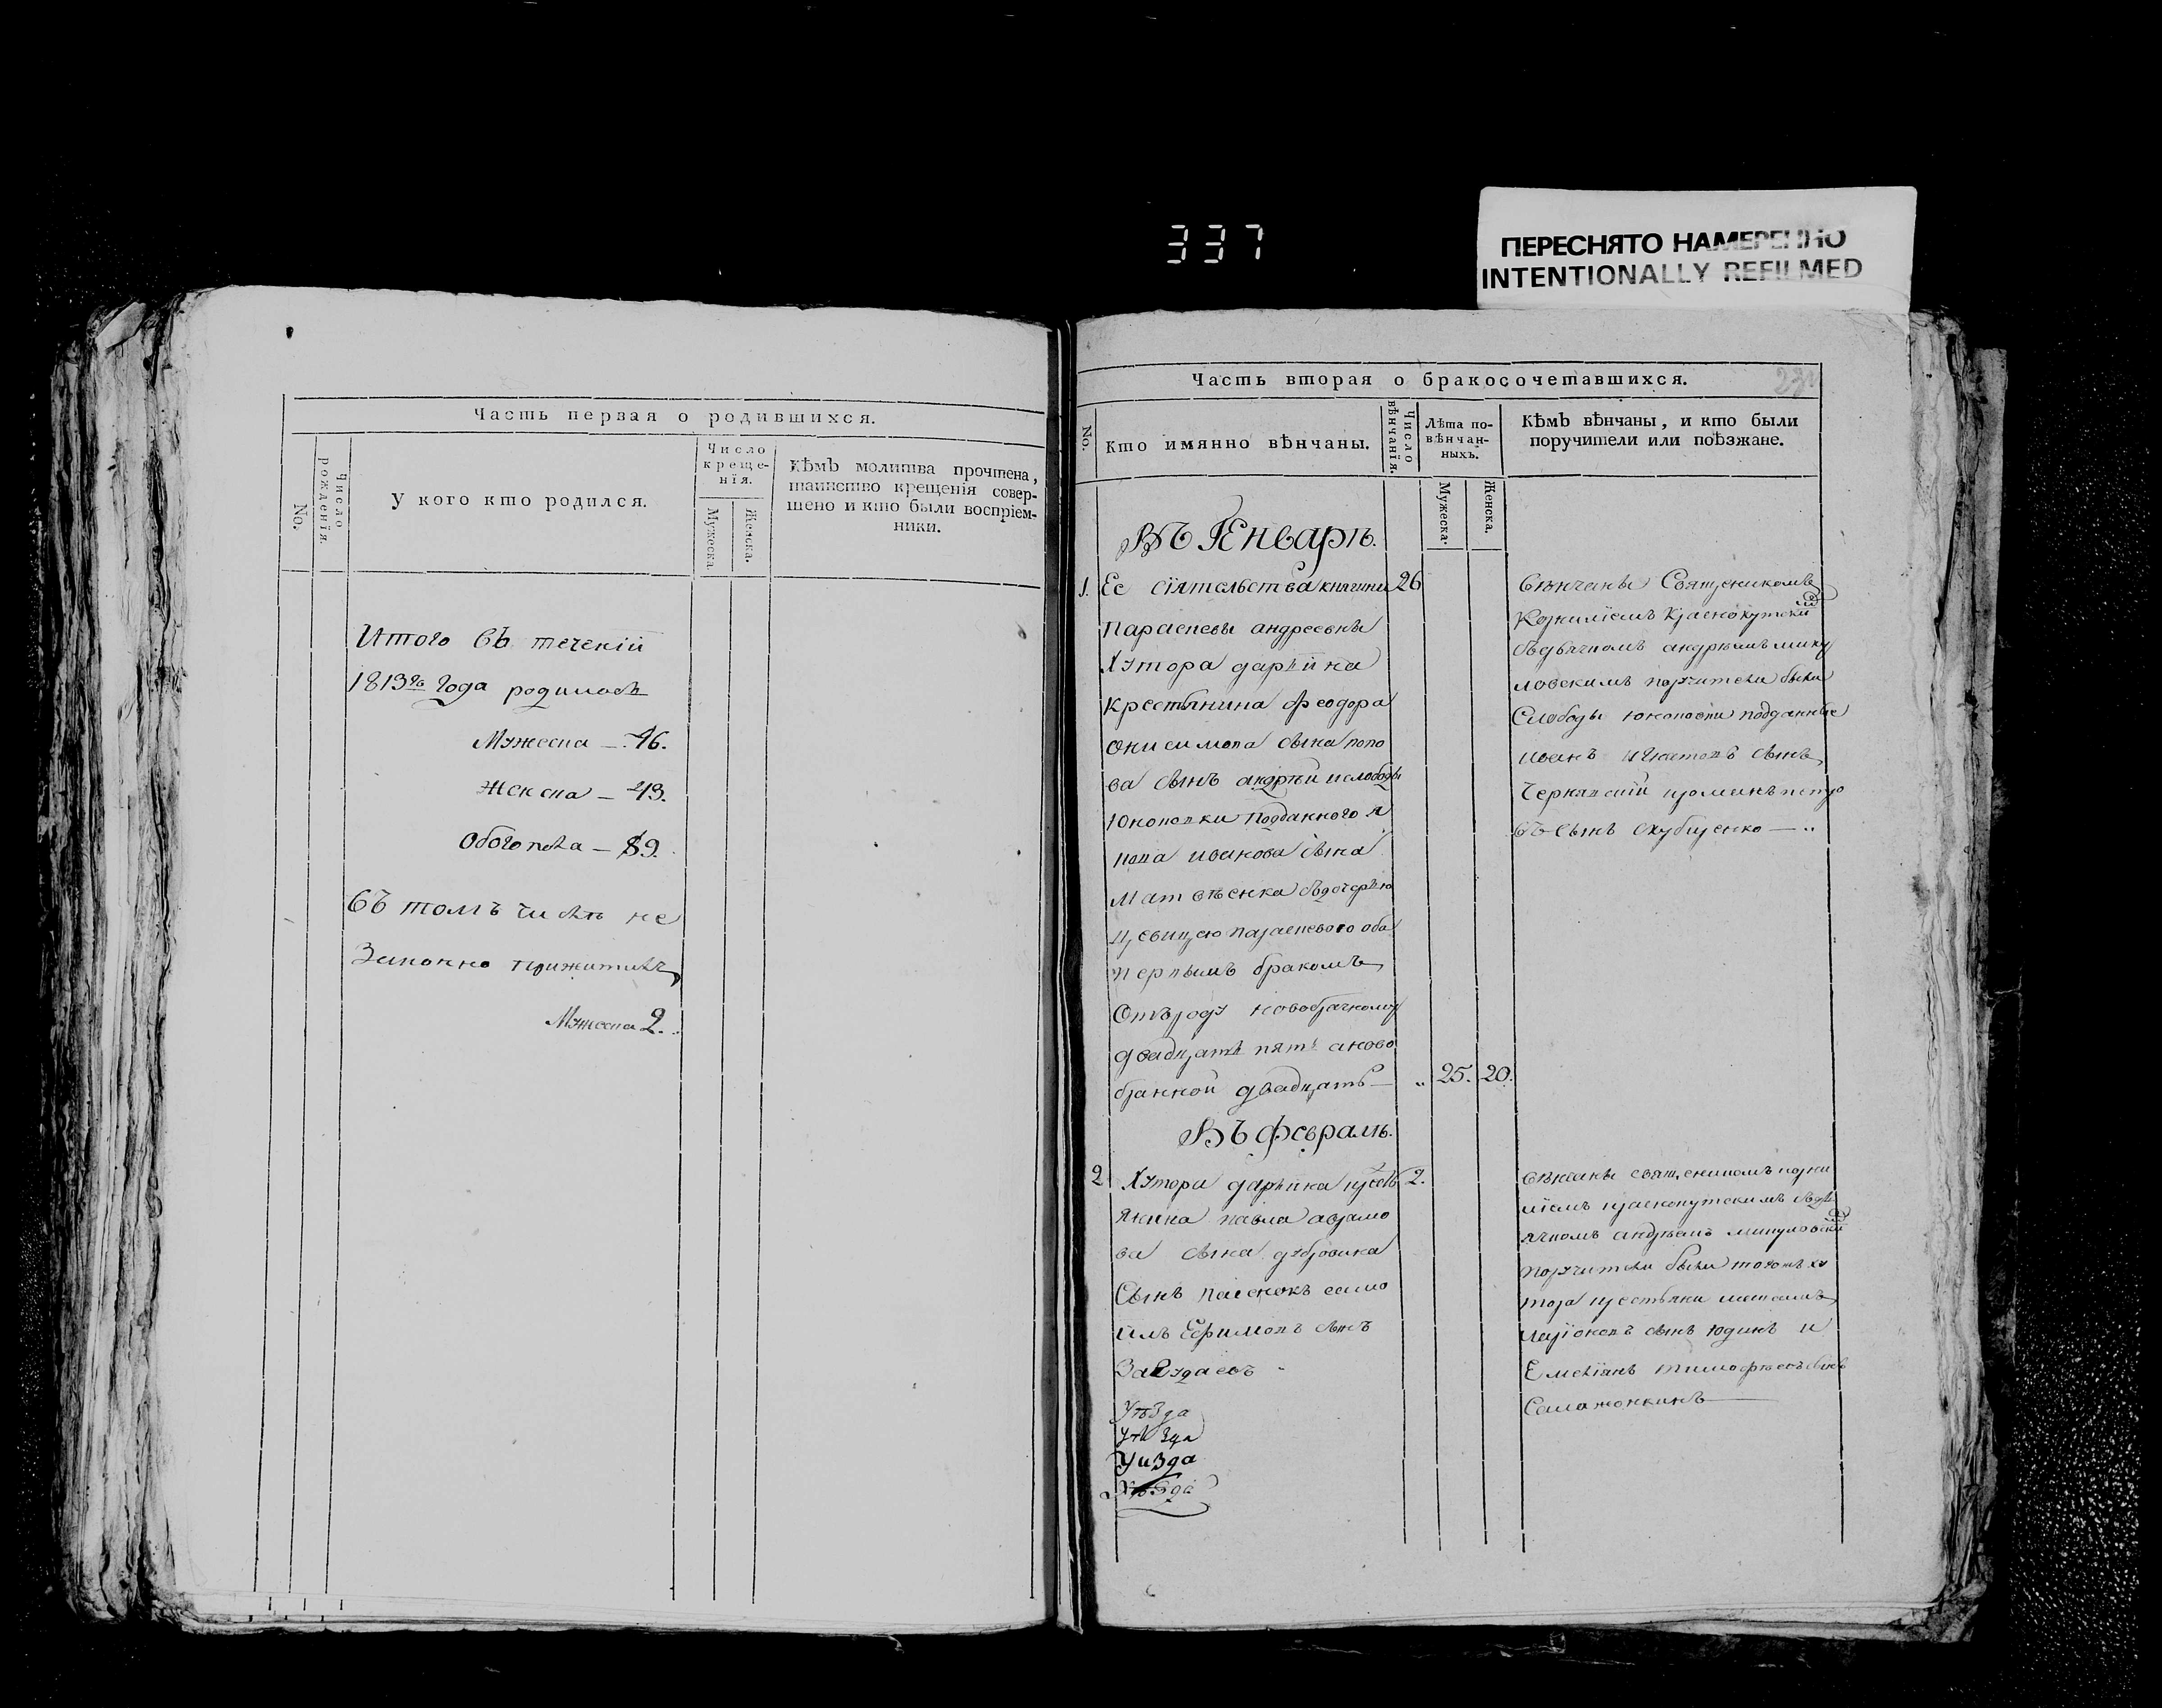 337
ПЕРЕСНЯТО НАМЕРЕННО
INTENTIONALLY REFILMED
Часть первая о родившихся.
No.
Число рожденія.
У кого кто родился.
Число
креще-
нія.
Мужеска
Женска.
Кѣмъ молитва прочтена,
таинство крещенія совер-
шено и кто были воспріем-
ники.
Итого въ теченіи
1813го Года родилось
Мужеска — 46.
Женска — 43.
Обого пола — 89.
Въ томъ числѣ не
Законно прижитыхъ
Мужеска 2.
Часть вторая о бракосочетавшихся.
No.
Кто имянно вѣнчаны.
Число вѣнчанія.
Лѣта по-
вѣнчан-
ныхъ.
Мужеска.
Женска.
Кѣмъ вѣнчаны, и кто были
поручители или поѣзжане.
Въ Генварѣ.
1. Ее сіятельства княгини 26
Параскевы андреевны
Хутора дарѣйка
Крестьянина феодора
онисимова сына попо
ва сынъ андрѣй и слободы
Юнаковки подданного я
кова иванова сына
Матвѣенка съдочерью
дѣвицею параскевою оба
первымъ бракомъ
Отъроду новобрачному
двадцать пять аново
брачной двадцать — 25. 20.
вѣнчаны Священикомъ
Корниліемъ Краснокутски
съдьячкомъ андрѣемъ мику
ловскимъ поручители были
Слободы юнаковки подданные
иванъ игнатовъ сынъ
Чернявскій
въ сынъ —
Въ февралѣ.
2 Хутора дарѣйка крестъ 2.
янина павла аврамо
ва сына дубровика
Сынъ пасенокъ само
илъ Ефимовъ сынъ
Уѣзда
Уѣзда
Уизда
Уѣзда
вѣнчаны священикомъ корни
ліемъ краснокутскимъ съдь
ячкомъ андрѣемъ микуловски
поручители были тогожъ ху
тора крестьяни
Ларіоновъ сынъ Юдинъ и
Емеліанъ тимофѣевъ сынъ